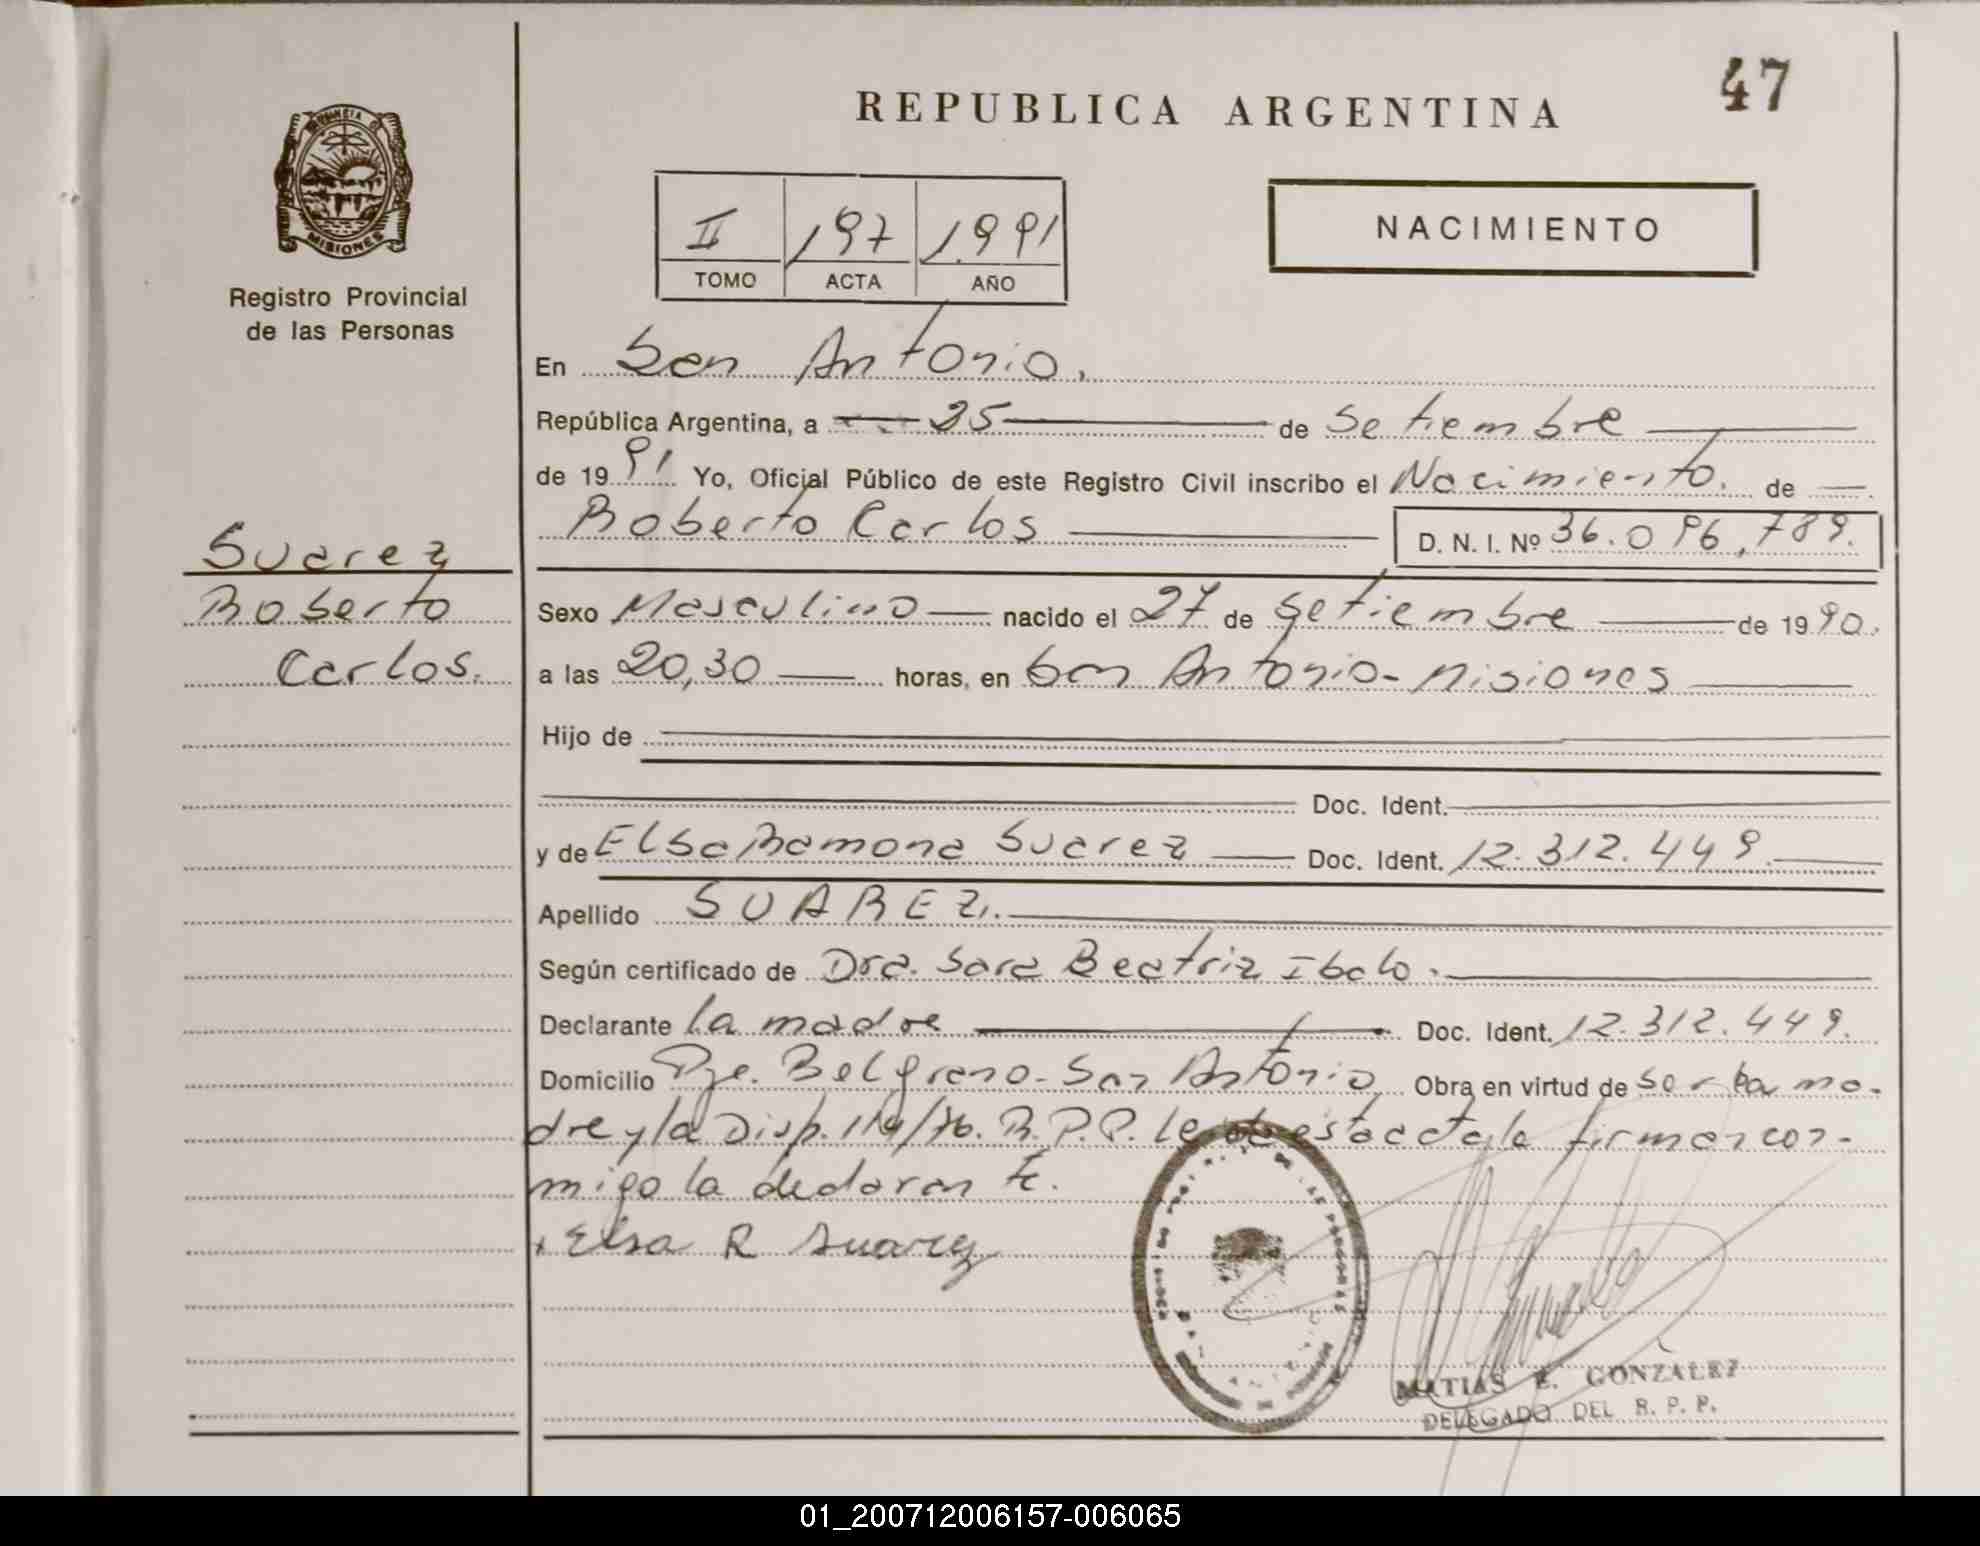 47
REPUBLICA ARGENTINA
PROVINCIA DE
MISIONES
Registro Provincial
de las Personas
II 197 1.991
TOMO ACTA AÑO
NACIMIENTO
En San Antonio.
República Argentina, a 25 de Setiembre
de 1991 Yo, Oficial Público de este Registro Civil inscribo el Nacimiento. de
Roberto Carlos D. N. I. Nº 36.096,789.
Suarez
Roberto
Carlos.
Sexo Masculino nacido el 27 de Setiembre de 1990.
a las 20,30 horas, en San Antonio-Misiones
Hijo de
Doc. Ident.
y de Elsa Ramona Suarez Doc. Ident. 12.312.449.
Apellido SUAREZ.
Según certificado de Dra. Sara Beatriz Ibalo.
Declarante la madre Doc. Ident. 12.312.449.
Domicilio Pje. Belgrano-San Antonio Obra en virtud de ser la ma-
dre y la Disp. 119/76. R.P.P. Leída esta acta la firman con-
migo la declaran te.
Elsa R Suarez
MATIAS E. GONZALEZ
DELEGADO DEL R. P. P.
01_200712006157-006065